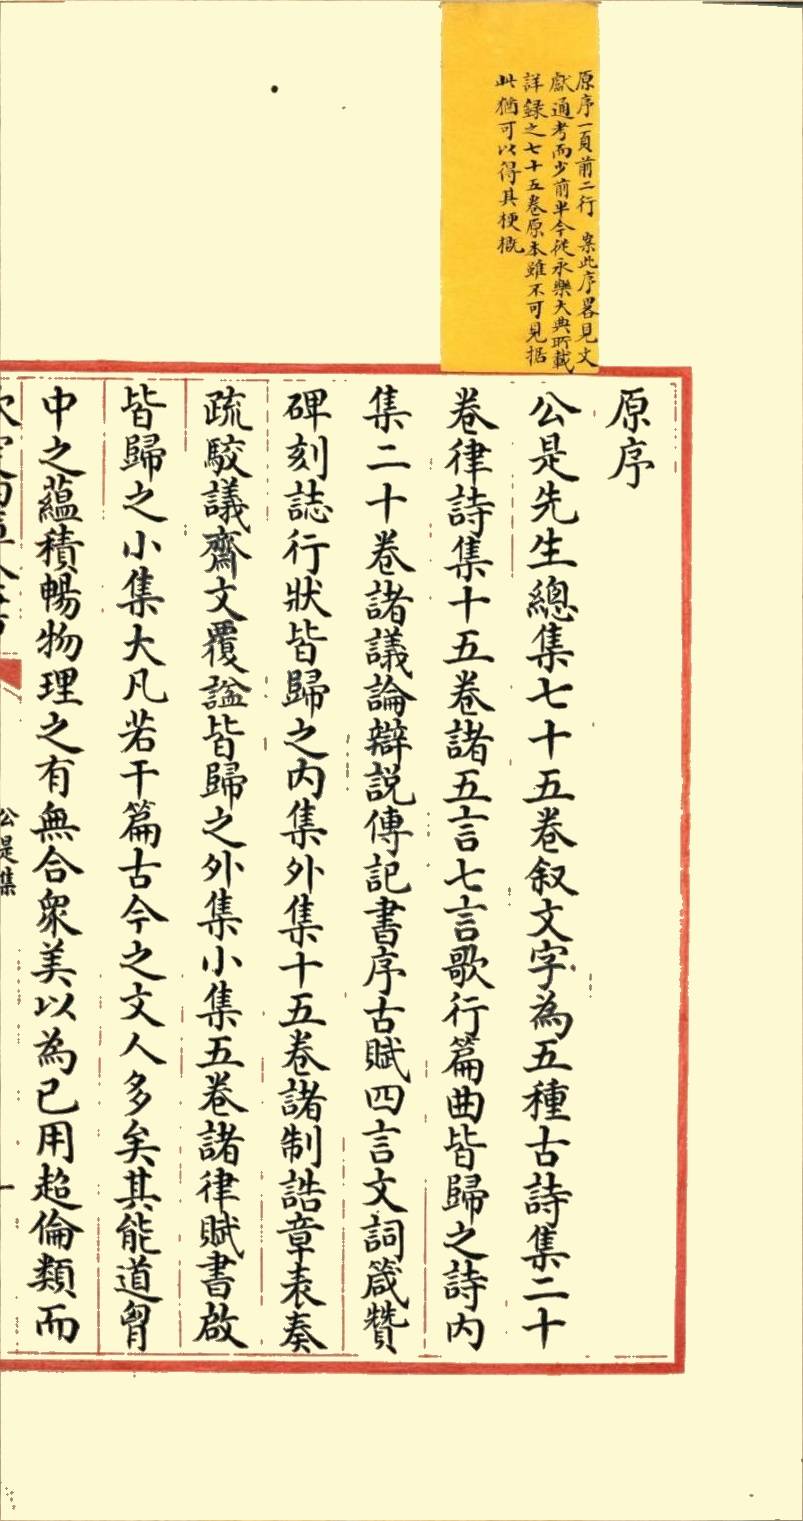 原序一頁前二行 案此序畧見文
獻通考而少前半今從永樂大典所載
詳録之七十五卷原本雖不可見据
此猶可以得其梗概
原序
公是先生總集七十五卷叙文字為五種古詩集二十
卷律詩集十五卷諸五言七言歌行篇曲皆歸之詩内
集二十卷諸議論辯説傳記書序古賦四言文詞箴贊
碑刻誌行狀皆歸之内集外集十五卷諸制誥章表奏
疏駮議齋文覆諡皆歸之外集小集五卷諸律賦書啟
皆歸之小集大凡若干篇古今之文人多矣其能道胷
中之蘊積暢物理之有無合衆美以為已用超倫類而
公是集
一